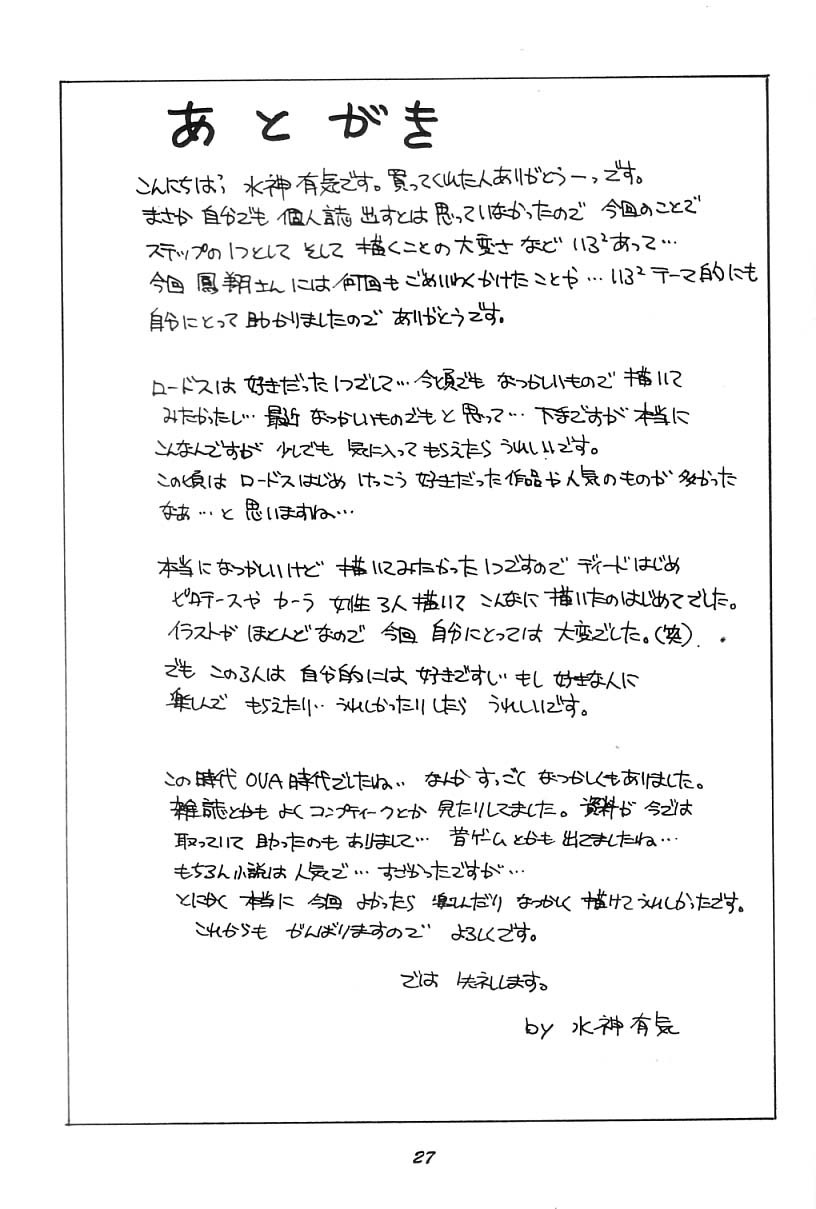 あとがき
こんにちはっ 水神有気です。買ってくれた人ありがとうーっです。
まさか 自分でも 個人誌 出すとは 思っていなかったので 今回のことで
ステップの1つとして そして 描くことの大変さなど いろ²あって…
今回 鳳翔さんには何回も ごめいわくかけたことや… いろ²テーマ的にも
自分にとって 助かりましたので ありがとうです。
ロードスは 好きだった1つでして… 今頃でも なつかしいもので 描いて
みたかったし… 最近 なつかしいものでもと思って… 下手ですが 本当に
こんなんですが 少しでも 気に入って もらえたら うれしいです。
この頃は ロードスはじめ けっこう 好きだった作品や人気のものが 多かった
なぁ…と 思いますね…
本当になつかしいけど 描いてみたかった1つですので ディードはじめ
ピロテースや カーラ 女性3人描いて こんなに 描いたのはじめてでした。
イラストが ほとんどなので 今回 自分にとっては 大変でした。(笑)
でも この3人は 自分的には、好きですし もし 好きな人に
楽しんで もらえたり… うれしかったりしたら うれしいです。
この時代 OVA時代でしたね… なんか すっごく なつかしくもありました。
雑誌とかも よく コンプティークとか 見たりしてました。資料が 今では
取っていて 助ったのも ありまして… 昔ゲームとかも 出てましたね…
もちろん小説は 人気で… すごかったですが…
とにかく 本当に 今回 よかったら 楽しんだり なつかしく 描けて うれしかったです。
これからも がんばりますので よろしくです。
では 失礼します。
by 水神有気
27